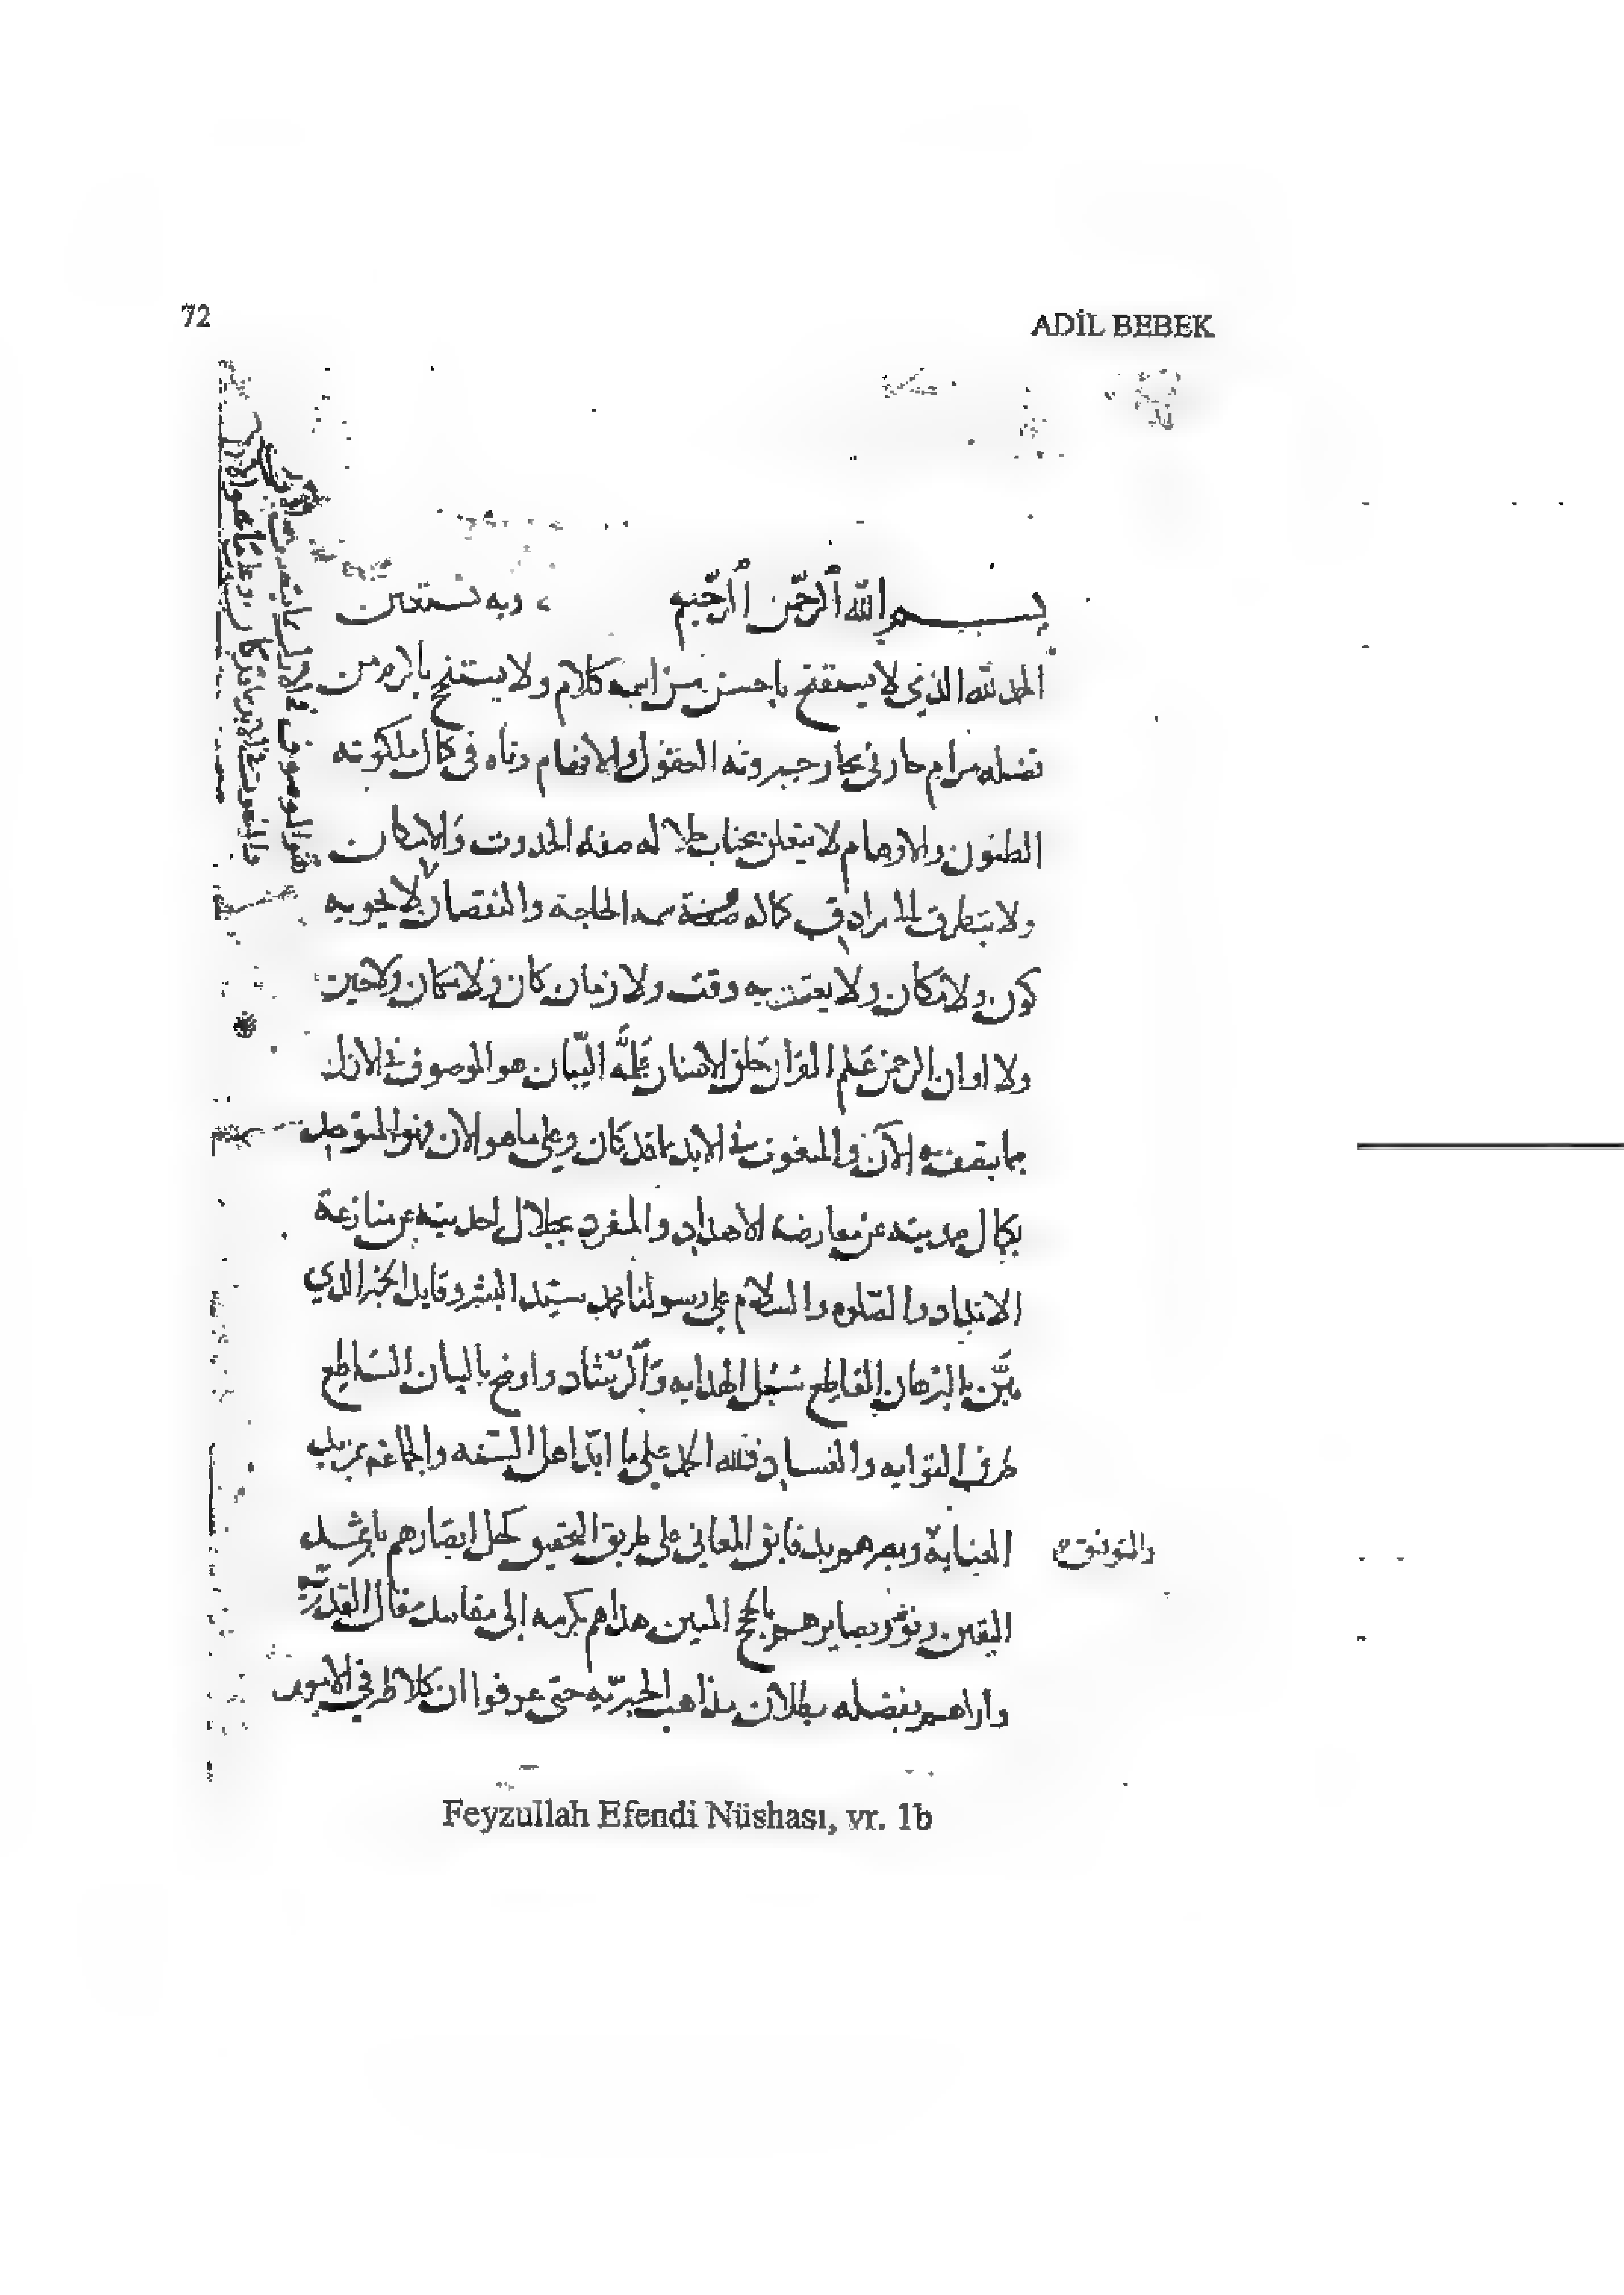 72
ADİL BEBEK
بسم الله الرَّحمن الرَّحيم وبه نستعين
الحمد لله الذي لا يستفتح باحسن من اسمه كلام ولا يستنجح بالزم من
فضله مرام حار في بحار جبروته العقول والافهام وتاه في كمال ملكوته
الظنون والاوهام لا يتعلق بجناب جلاله صفة الحدوث والامكان
ولا يتطرق الى سرادق كماله سمة الحاجة والنقصان لا يحويه
كون ولا مكان ولا يعتريه وقت ولا زمان كان ولا مكان ولا حين
ولا اوان الرحمن علم القران خلق الانسان علَّمه البيان هو الموصوف في الازل
بما يتصف به الآن والمنعوت في الابد بما قد كان وعلى ما هو الان وهو المتوحد
بكمال صمديته عن معارضة الاضداد والمتفرد بجلال احديته عن منازعة
الانداد والصلوة والسلام على رسولنا محمد سيّد البشر وقايل الخبر الذي
بيَّن بالبرهان القاطع سُبُل الهدايه والرّشاد واوضح بالبيان السّاطع
طرق الغوايه والفساد فلله الحمد على ما ايّد اهل السّنه والجماعة بمزيد
العناية وبصرهم بدقايق المعاني على طريق التحقيق كحل ابصارهم بارشد
والتوفيق
اليقين ونوّر بصايرهم بالحجج المبين هداهم بكرمه الى مفاسد مقال القدريّه
واراهم بفضله بطلان مذاهب الجبريّه حتى عرفوا ان كلا طرفي الامور
Feyzullah Efendi Nüshası, vr. 1b